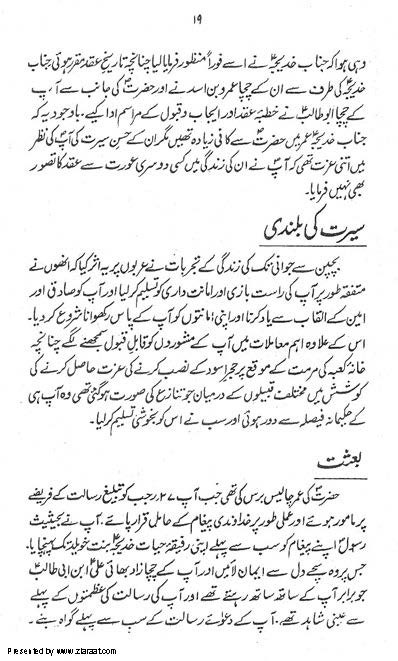 ۱۹
وہی ہوا کہ جناب خدیجہؑ نے اسے فوراً منظور فرما لیا چنانچہ تاریخِ عقد مقرر ہوئی جناب
خدیجہؑ کی طرف سے ان کے چچا عمرو بن اسد نے اور حضرتؐ کی جانب سے آپ
کے چچا ابو طالبؑ نے خطبۂ عقد اور ایجاب و قبول کے مراسم ادا کیے۔ باوجودیکہ
جناب خدیجہؑ عمر میں حضرتؐ سے کافی زیادہ تھیں مگر ان کے حسنِ سیرت کی آپؐ کی نظر
میں اتنی عزت تھی کہ آپؐ نے ان کی زندگی میں کسی دوسری عورت سے عقد کا تصور
بھی نہیں فرمایا۔
سیرت کی بلندی
بچپن سے جوانی تک کی زندگی کے تجربات نے عربوں پر یہ اثر کیا کہ انھوں نے
متفقہ طور پر آپ کی راست بازی اور امانت داری کو تسلیم کر لیا اور آپ کو صادق اور
امین کے القاب سے یاد کرنا اور اپنی امانتوں کو آپ کے پاس رکھوانا شروع کر دیا۔
اس کے علاوہ اہم معاملات میں آپ کے مشوروں کو قابلِ قبول سمجھنے لگے چنانچہ
خانہ کعبہ کی مرمت کے موقع پر حجرِ اسود کے نصب کرنے کی عزت حاصل کرنے کی
کوشش میں مختلف قبیلوں کے درمیان جو تنازع کی صورت ہو گئی تھی وہ آپ ہی
کے حکیمانہ فیصلہ سے دور ہوئی اور سب نے اس کو بخوشی تسلیم کر لیا۔
بعثت
حضرتؐ کی عمر چالیس برس کی تھی جب آپ ۲۷ رجب کو تبلیغِ رسالت کے فریضے
پر مامور ہوئے اور عملی طور پر خداوندی پیغام کے حامل قرار پائے۔ آپ نے بحیثیت
رسولؐ اپنے پیغام کو سب سے پہلے اپنی رفیقۂ حیات خدیجہؑ بنت خویلد تک پہنچایا۔
جس پر وہ سچے دل سے ایمان لائیں اور آپ کے چچا زاد بھائی علیؑ ابن ابی طالبؑ
جو برابر آپ کے ساتھ ساتھ رہتے تھے اور آپ کی رسالت کی عظمتوں کے پہلے
سے عینی شاہد تھے۔ آپ کے دعوائے رسالت کے سب سے پہلے گواہ بنے۔
Presented by www.ziaraat.com